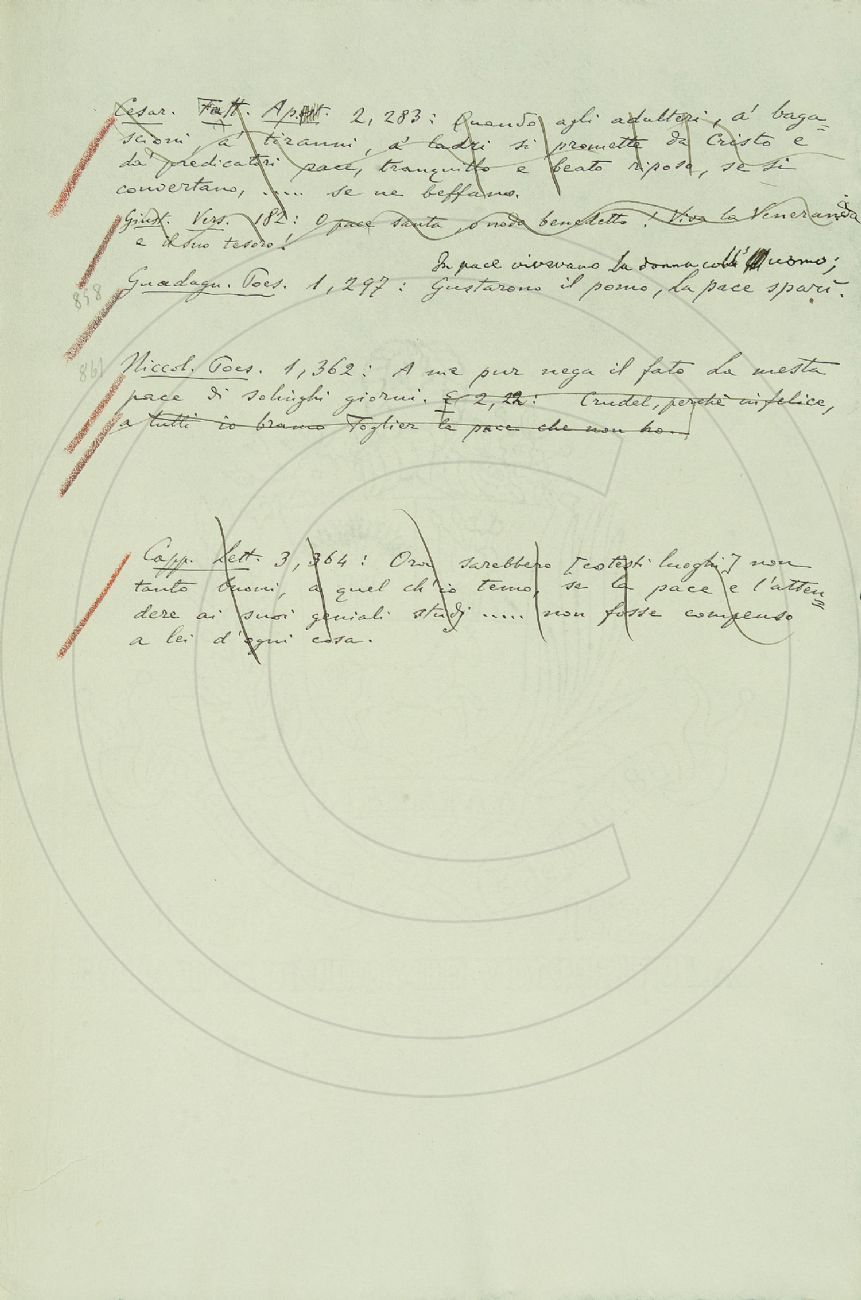 Cesar. Fatt. Apost. 2, 283: Quando agli adulteri, a' baga-
scioni, a' tiranni, a' ladri si promette da Cristo e
da' predicatori pace, tranquillo e beato riposo, se si
convertano, ..... se ne beffano.
Giust. Vers. 182: O pace santa, o nodo benedetto! Viva la Veneranda
e il suo tesoro!
In pace vivevano La donna coll' uomo;
858 Guadagn. Poes. 1, 297: Gustarono il pomo, La pace sparì.
861 Niccol. Poes. 1, 362: A me pur nega il fato La mesta
pace di solinghi giorni. E 2, 22: Crudel, perchè infelice,
a tutti io bramo Toglier la pace che non ho.
Capp. Lett. 3, 364: Ora sarebbero [cotesti luoghi] non
tanto buoni, a quel ch'io temo, se la pace e l'atten=
dere ai suoi geniali studj ..... non fosse compenso
a lei d'ogni cosa.